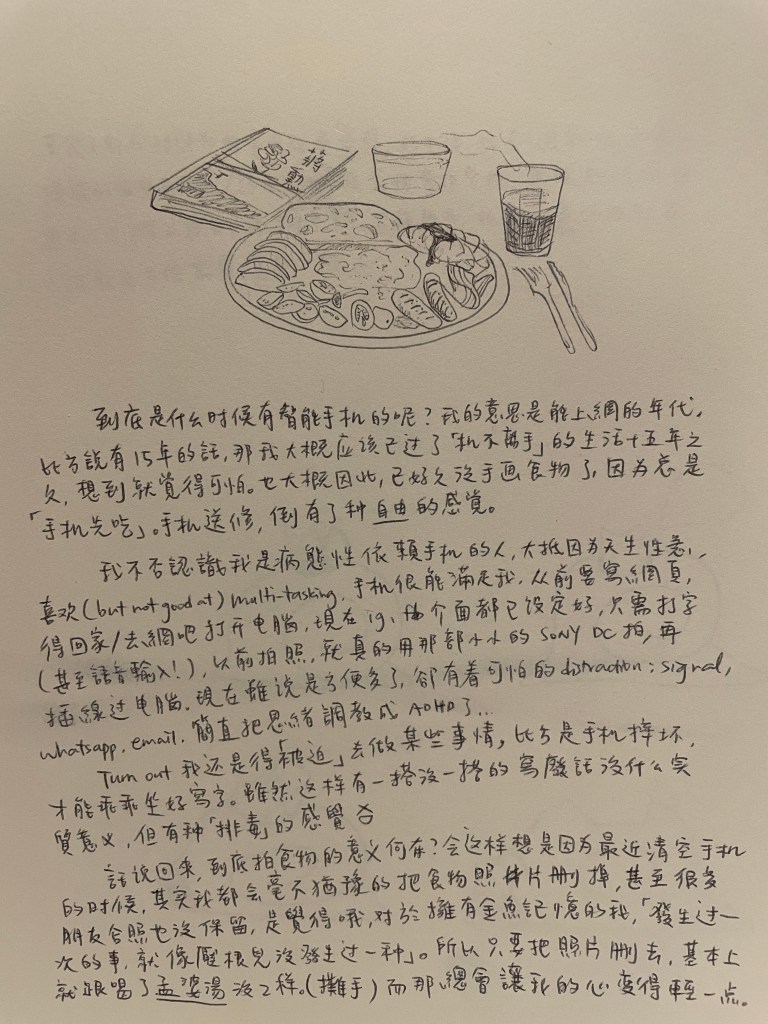 蔣勳
到底是什么时候有智能手机的呢？我的意思是能上網的年代，
比方說有15年的話，那我大概应该已过了「机不離手」的生活十五年之
久，想到就覺得可怕。也大概因此，已好久沒手画食物了，因为总是
「手机先吃」。手机送修，倒有了种自由的感覚。
我不否認識我是病態性依賴手机的人，大抵因为天生性急，
喜欢(but not good at) multi-tasking，手机很能滿足我，从前要寫網頁，
得回家/去網吧打开电腦，現在ig、fb介面都已设定好，只需打字
(甚至語音輸入!)，以前拍照，就真的用那部小小的SONY DC拍，再
插線过电腦，現在雖说是方便多了，卻有着可怕的distraction：signal,
whatsapp, email，簡直把思緒調教成ADHD了...
Turn out 我还是得「被迫」去做某些事情，比方是手机摔坏，
才能乖乖坐好寫字。雖然这样有一搭沒一搭的寫廢話沒什么实
質意义，但有种「排毒」的感覺
話说回来，到底拍食物的意义何在？会这样想是因为最近清空手机
的时候，其实我都会毫不猶豫的把食物照片删掉，甚至很多
朋友合照也沒保留，是覺得哦，对於擁有金魚記憶的我，「發生过一
次的事，就像壓根兒沒發生过一种」。所以只要把照片删去，基本上
就跟喝了孟婆湯沒2样。(攤手) 而那總會讓我的心变得輕一点。